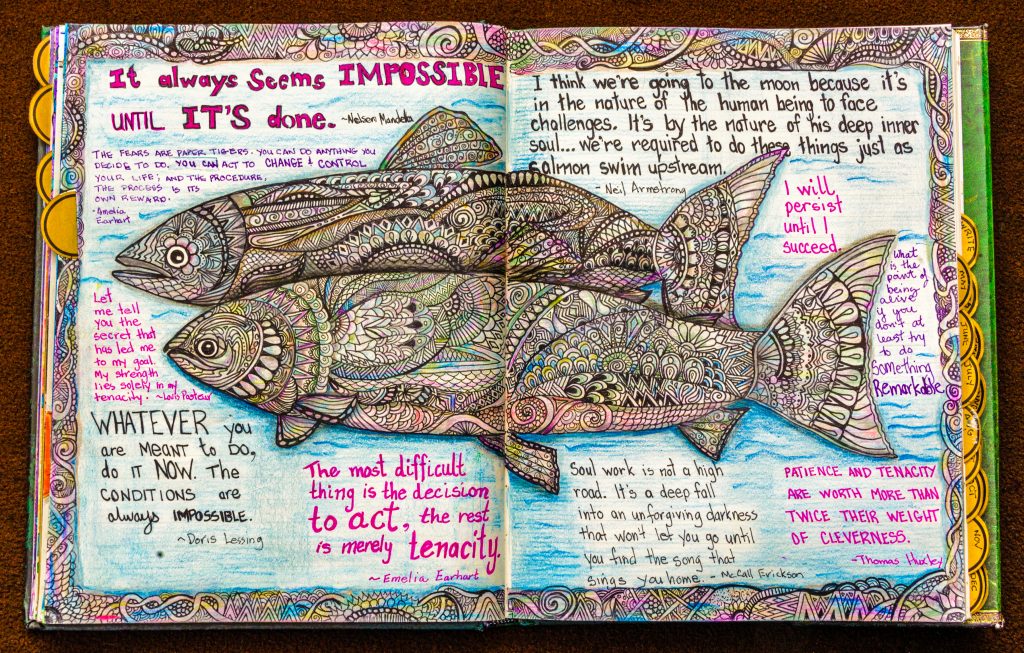 It always seems IMPOSSIBLE
UNTIL IT'S done. ~Nelson Mandela
THE FEARS ARE PAPER TIGERS. YOU CAN DO ANYTHING YOU
DECIDE TO DO. YOU CAN ACT TO CHANGE & CONTROL
YOUR LIFE; AND THE PROCEDURE,
THE PROCESS IS ITS
OWN REWARD.
-Amelia
Earhart
Let
me tell
you the
secret that
has led me
to my goal.
My strength
lies solely in my
tenacity. ~Louis Pasteur
WHATEVER you
are MEANT to DO,
do IT NOW. The
CONDITIONS are
always IMPOSSIBLE.
~Doris Lessing
The most difficult
thing is the decision
to act, the rest
is merely tenacity.
~Emelia Earhart
I think we're going to the moon because it's
in the nature of the human being to face
challenges. It's by the nature of his deep inner
soul... we're required to do these things just as
salmon swim upstream.
- Neil Armstrong
I will
persist
until I
succeed.
What
is the
point of
being
alive
if you
don't at
least try
to do
something
Remarkable
Soul work is not a high
road. It's a deep fall
into an unforgiving darkness
that won't let you go until
you find the song that
sings you home. - McCall Erickson
PATIENCE AND TENACITY
ARE WORTH MORE THAN
TWICE THEIR WEIGHT
OF CLEVERNESS.
~Thomas Huxley
MAY
JUNE
JULY
NOV
DEC